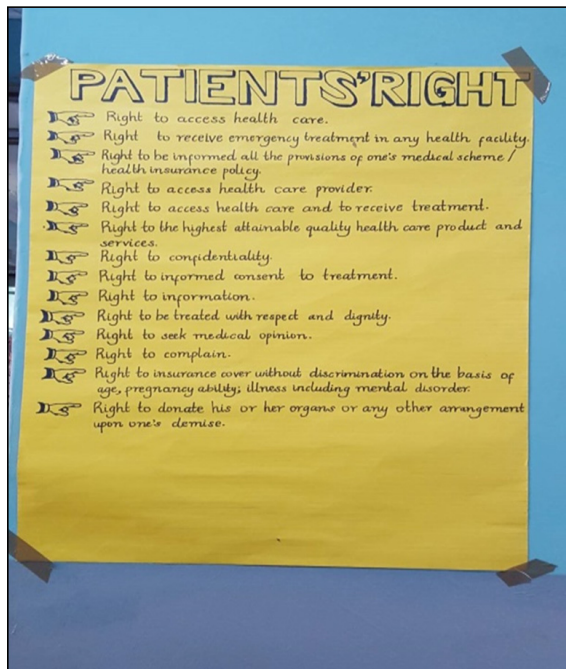 PATIENTS' RIGHT
Right to access health care.
Right to receive emergency treatment in any health facility.
Right to be informed all the provisions of one's medical scheme /
health insurance policy.
Right to access health care provider.
Right to access health care and to receive treatment.
Right to the highest attainable quality health care product and
services.
Right to confidentiality.
Right to informed consent to treatment.
Right to information.
Right to be treated with respect and dignity.
Right to seek medical opinion.
Right to complain.
Right to insurance cover without discrimination on the basis of
age, pregnancy ability; illness including mental disorder.
Right to donate his or her organs or any other arrangement
upon one's demise.